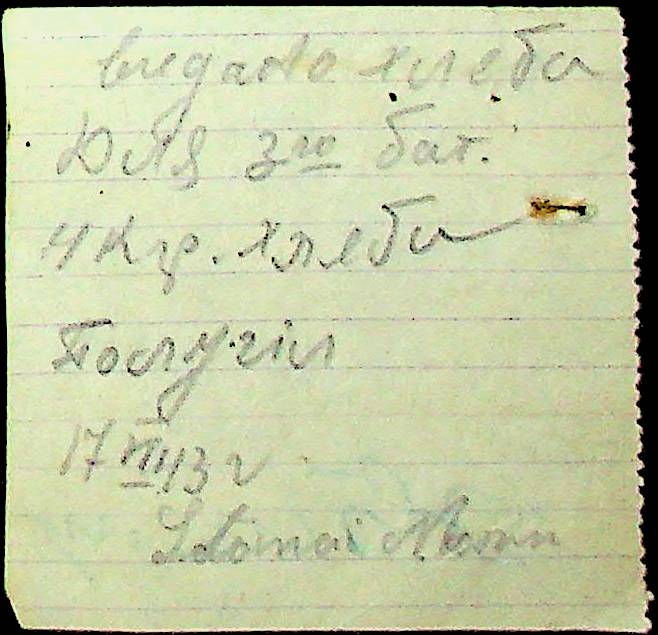 видано хлеба
для 3го бат.
4 кгр. хлеба
Получил
17 VII 43 г